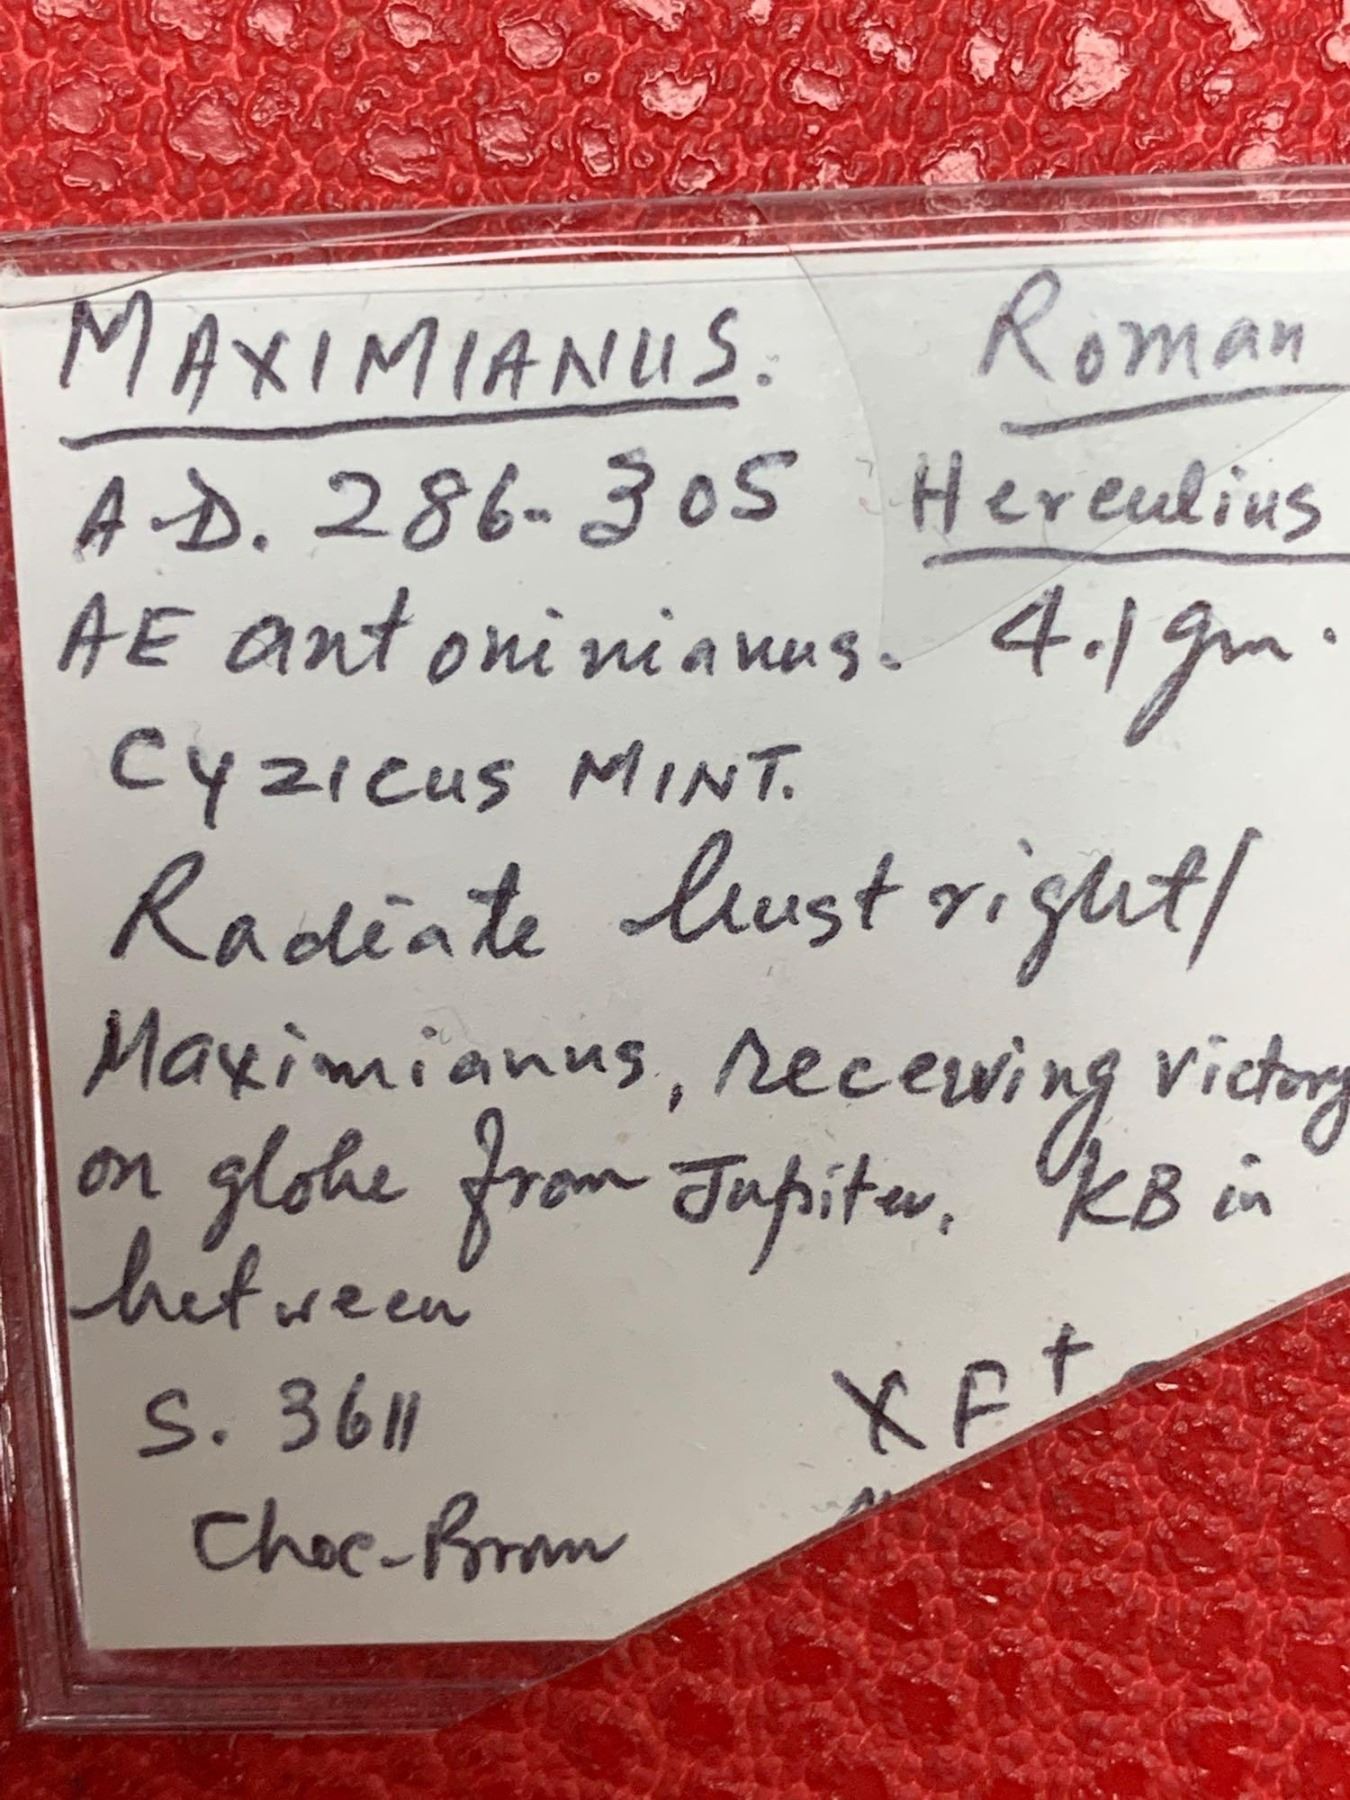 MAXIMIANUS. Roman
A.D. 286-305 Herculius
AE antoninianus. 4.1 gm.
Cyzicus MINT.
Radiate bust right/
Maximianus, receiving victory
on globe from Jupiter. KB in
between
S. 3611 XF+
Choc-Brown